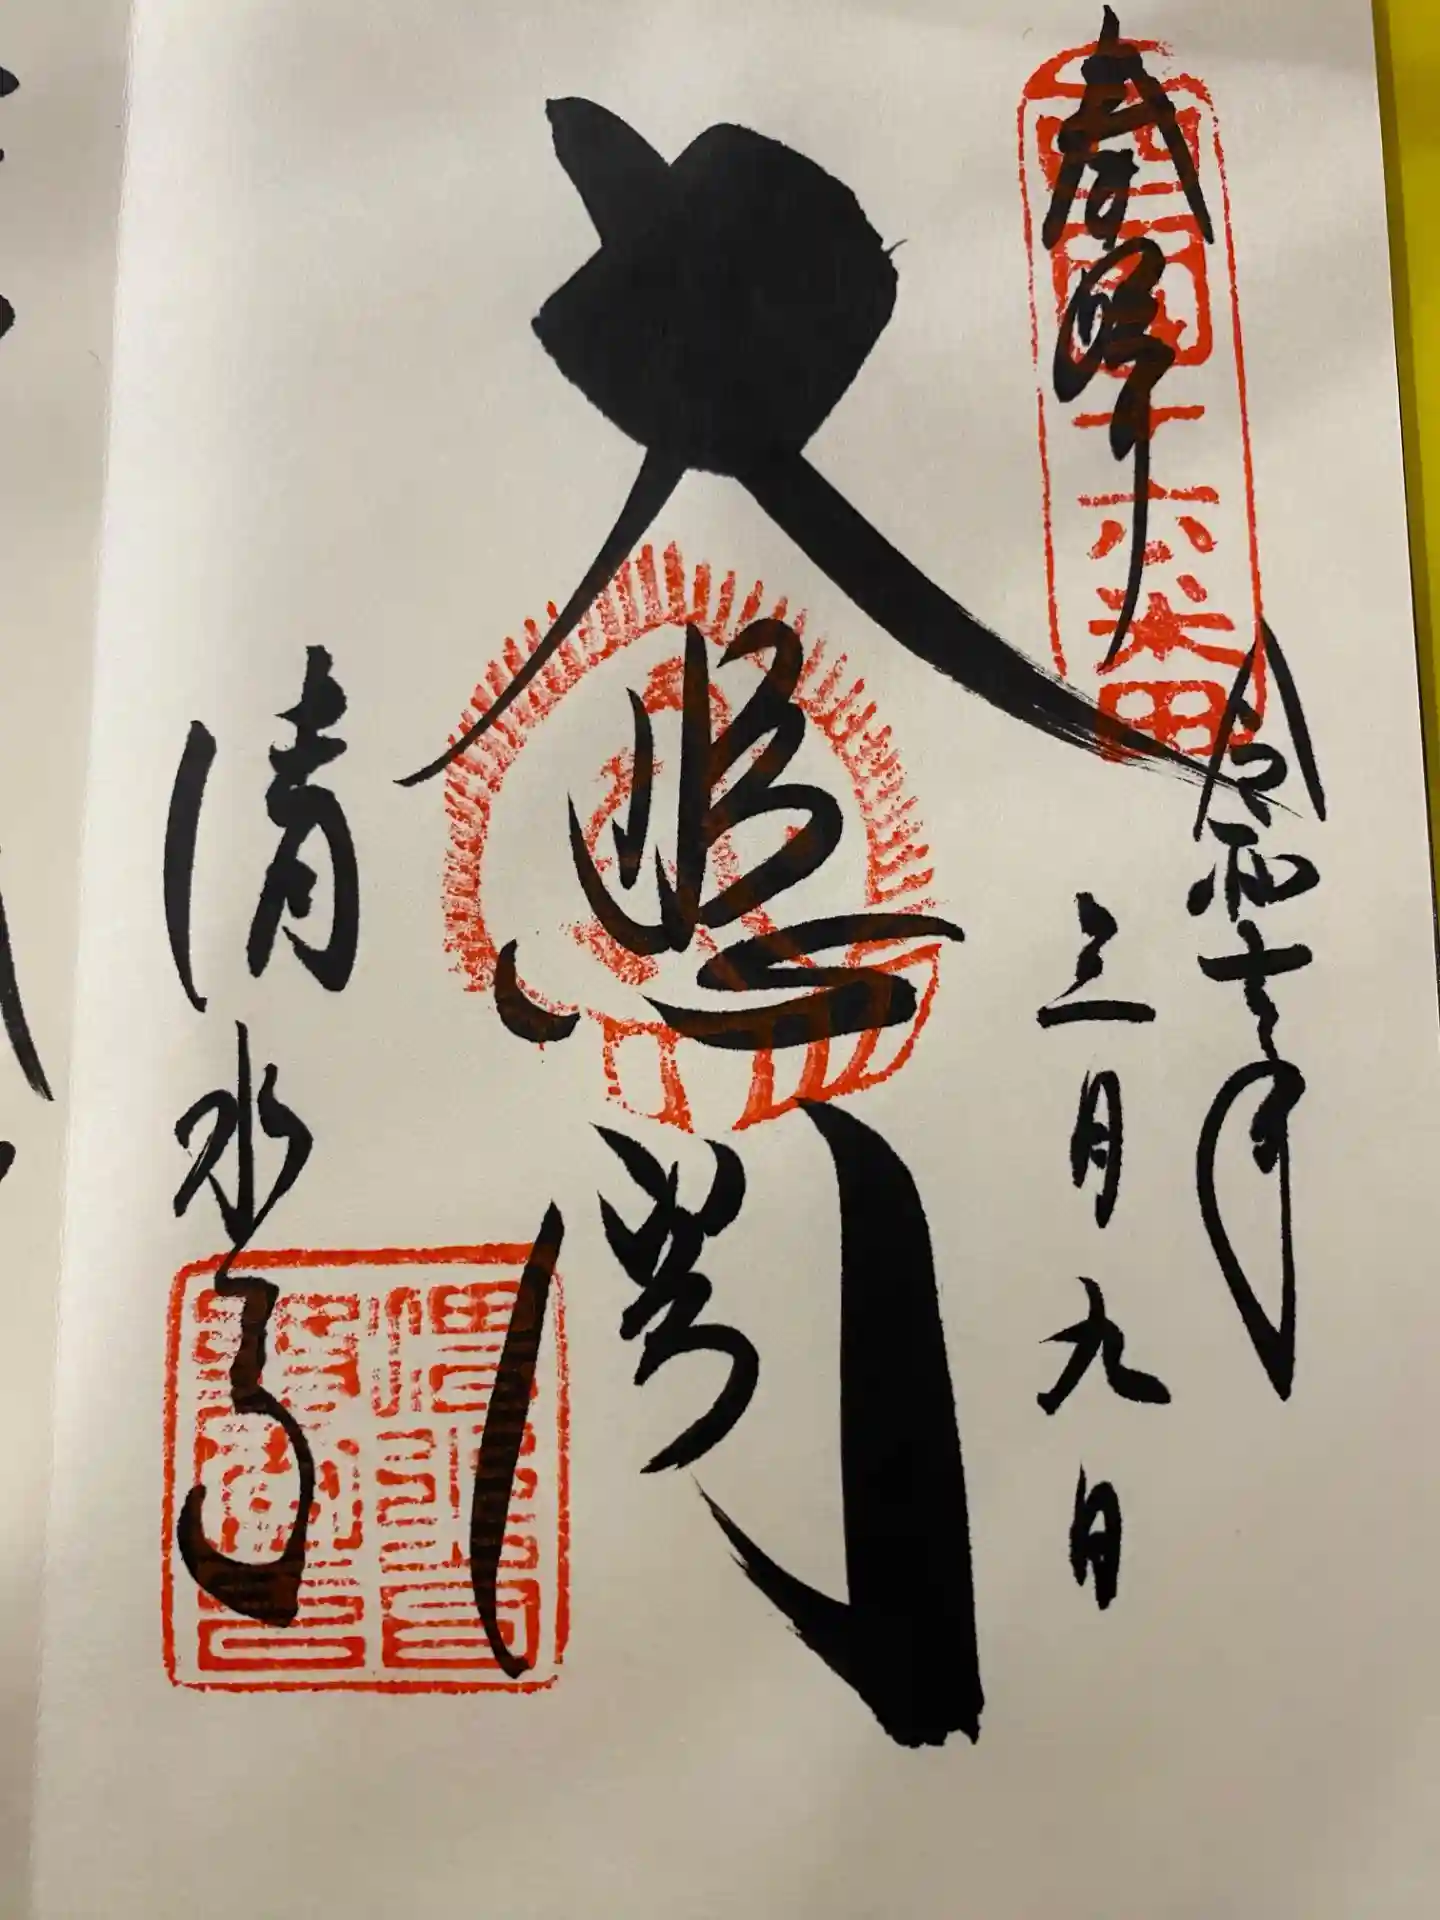 奉拝
西国十六番
令和七年
三月九日
大悲閣
清水寺